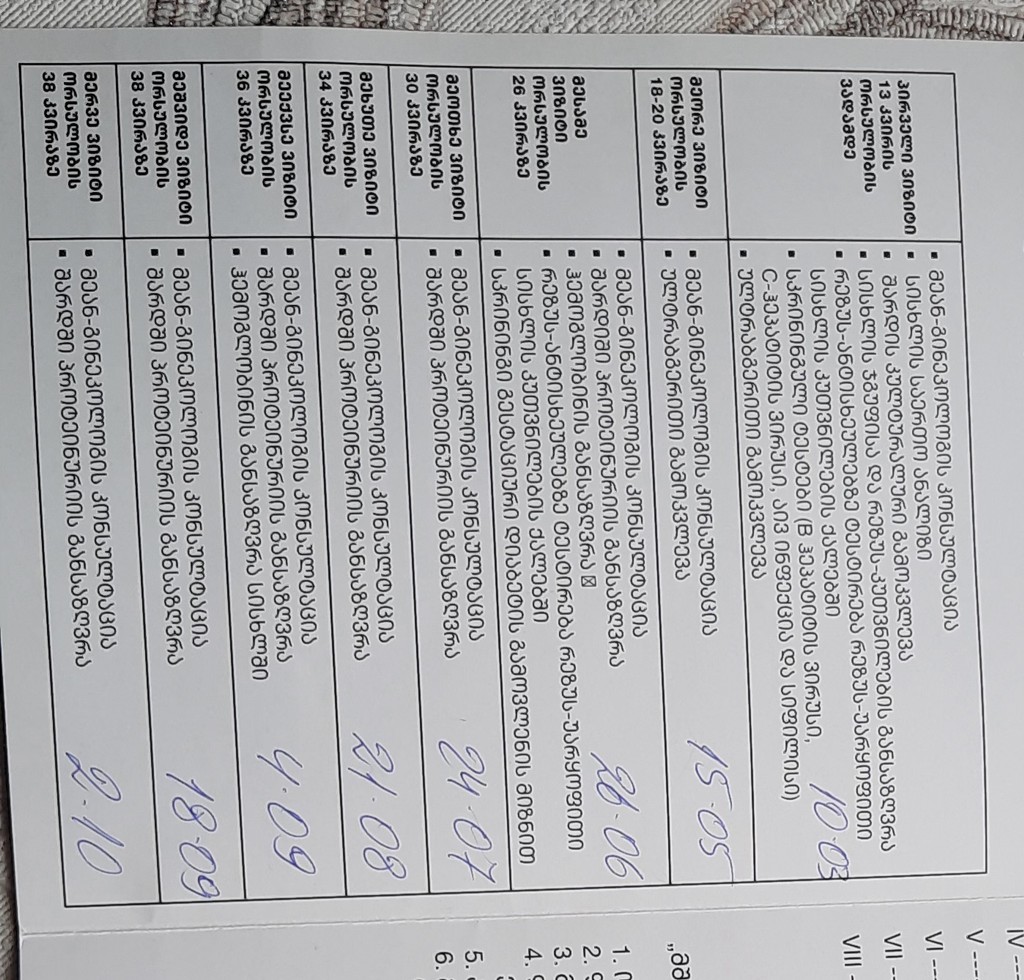 პირველი ვიზიტი
13 კვირის
ორსულობის
ვადამდე
▪ მეან-გინეკოლოგის კონსულტაცია
▪ სისხლის საერთო ანალიზი
▪ შარდის კულტურალური გამოკვლევა
▪ სისხლის ჯგუფისა და რეზუს-კუთვნილების განსაზღვრა
▪ რეზუს-ანტისხეულებზე ტესტირება რეზუს-უარყოფითი
სისხლის კუთვნილების ქალებში
▪ სკრინინგული ტესტები (B ჰეპატიტის ვირუსი,
C-ჰეპატიტის ვირუსი, აივ ინფექცია და სიფილისი)
▪ ულტრაბგერითი გამოკვლევა
10·03
მეორე ვიზიტი
ორსულობის
18-20 კვირაზე
▪ მეან-გინეკოლოგის კონსულტაცია
▪ ულტრაბგერითი გამოკვლევა
15·05
მესამე
ვიზიტი
ორსულობის
26 კვირაზე
▪ მეან-გინეკოლოგის კონსულტაცია
▪ შარდში პროტეინურიის განსაზღვრა
▪ ჰემოგლობინის განსაზღვრა
▪ რეზუს-ანტისხეულებზე ტესტირება რეზუს-უარყოფითი
სისხლის კუთვნილების ქალებში
▪ სკრინინგი გესტაციური დიაბეტის გამოვლენის მიზნით
26·06
მეოთხე ვიზიტი
ორსულობის
30 კვირაზე
▪ მეან-გინეკოლოგის კონსულტაცია
▪ შარდში პროტეინურიის განსაზღვრა
24·07
მეხუთე ვიზიტი
ორსულობის
34 კვირაზე
▪ მეან-გინეკოლოგის კონსულტაცია
▪ შარდში პროტეინურიის განსაზღვრა
21·08
მეექვსე ვიზიტი
ორსულობის
36 კვირაზე
▪ მეან-გინეკოლოგის კონსულტაცია
▪ შარდში პროტეინურიის განსაზღვრა
▪ ჰემოგლობინის განსაზღვრა სისხლში
4·09
მეშვიდე ვიზიტი
ორსულობის
38 კვირაზე
▪ მეან-გინეკოლოგის კონსულტაცია
▪ შარდში პროტეინურიის განსაზღვრა
18·09
მერვე ვიზიტი
ორსულობის
38 კვირაზე
▪ მეან-გინეკოლოგის კონსულტაცია
▪ შარდში პროტეინურიის განსაზღვრა
2·10
IV --
V ---
VI --
VII --
VIII
1.
2.
3.
4.
5.
6.